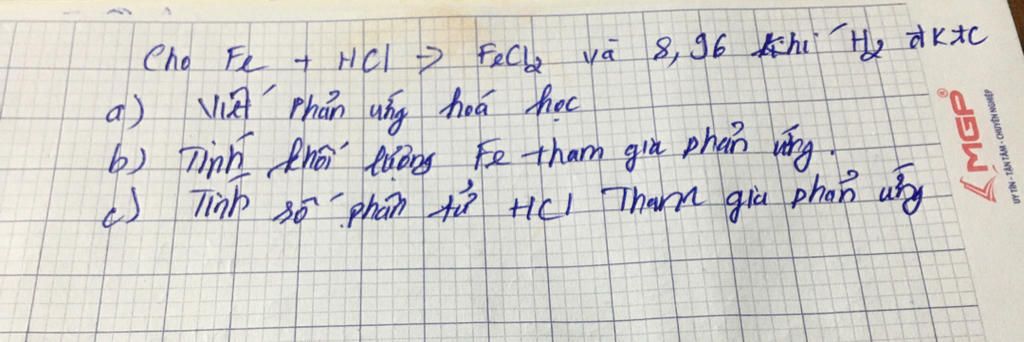 Cho Fe + HCl -> FeCl2 và 8,96 khí H2 đktc
a) Viết phản ứng hoá học
b) Tính khối lượng Fe tham gia phản ứng.
c) Tính số phân tử HCl Tham gia phản ứng
MGP®
UY TÍN - TẬN TÂM - CHUYÊN NGHIỆP